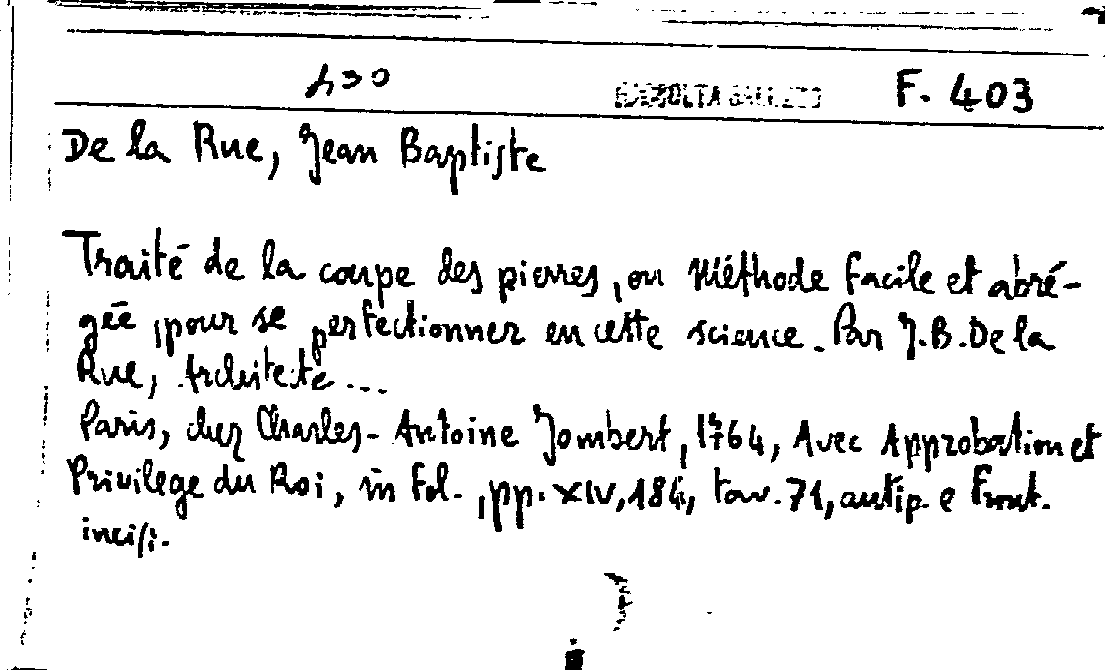 430 F. 403
De la Rue, Jean Baptiste
Traité de la coupe des pierres, ou Méthode facile et abré-
gée, pour se perfectionner en cette science. Par J.B. De la
Rue, Architecte...
Paris, chez Charles-Antoine Jombert, 1764, Avec Approbation et
Privilege du Roi, in fol., pp. XIV, 184, tav. 71, antip. e front.
incisi.